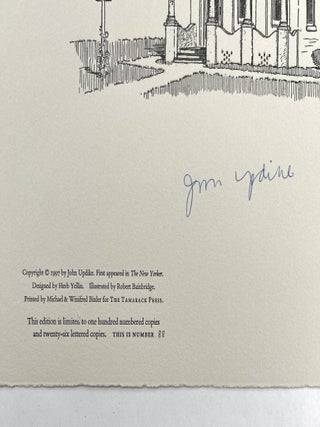 John Updike
Copyright © 1997 by John Updike. First appeared in The New Yorker.
Designed by Herb Yellin. Illustrated by Robert Bainbridge.
Printed by Michael & Winifred Bixler for THE TAMARACK PRESS.
This edition is limited to one hundred numbered copies
and twenty-six lettered copies. THIS IS NUMBER 88